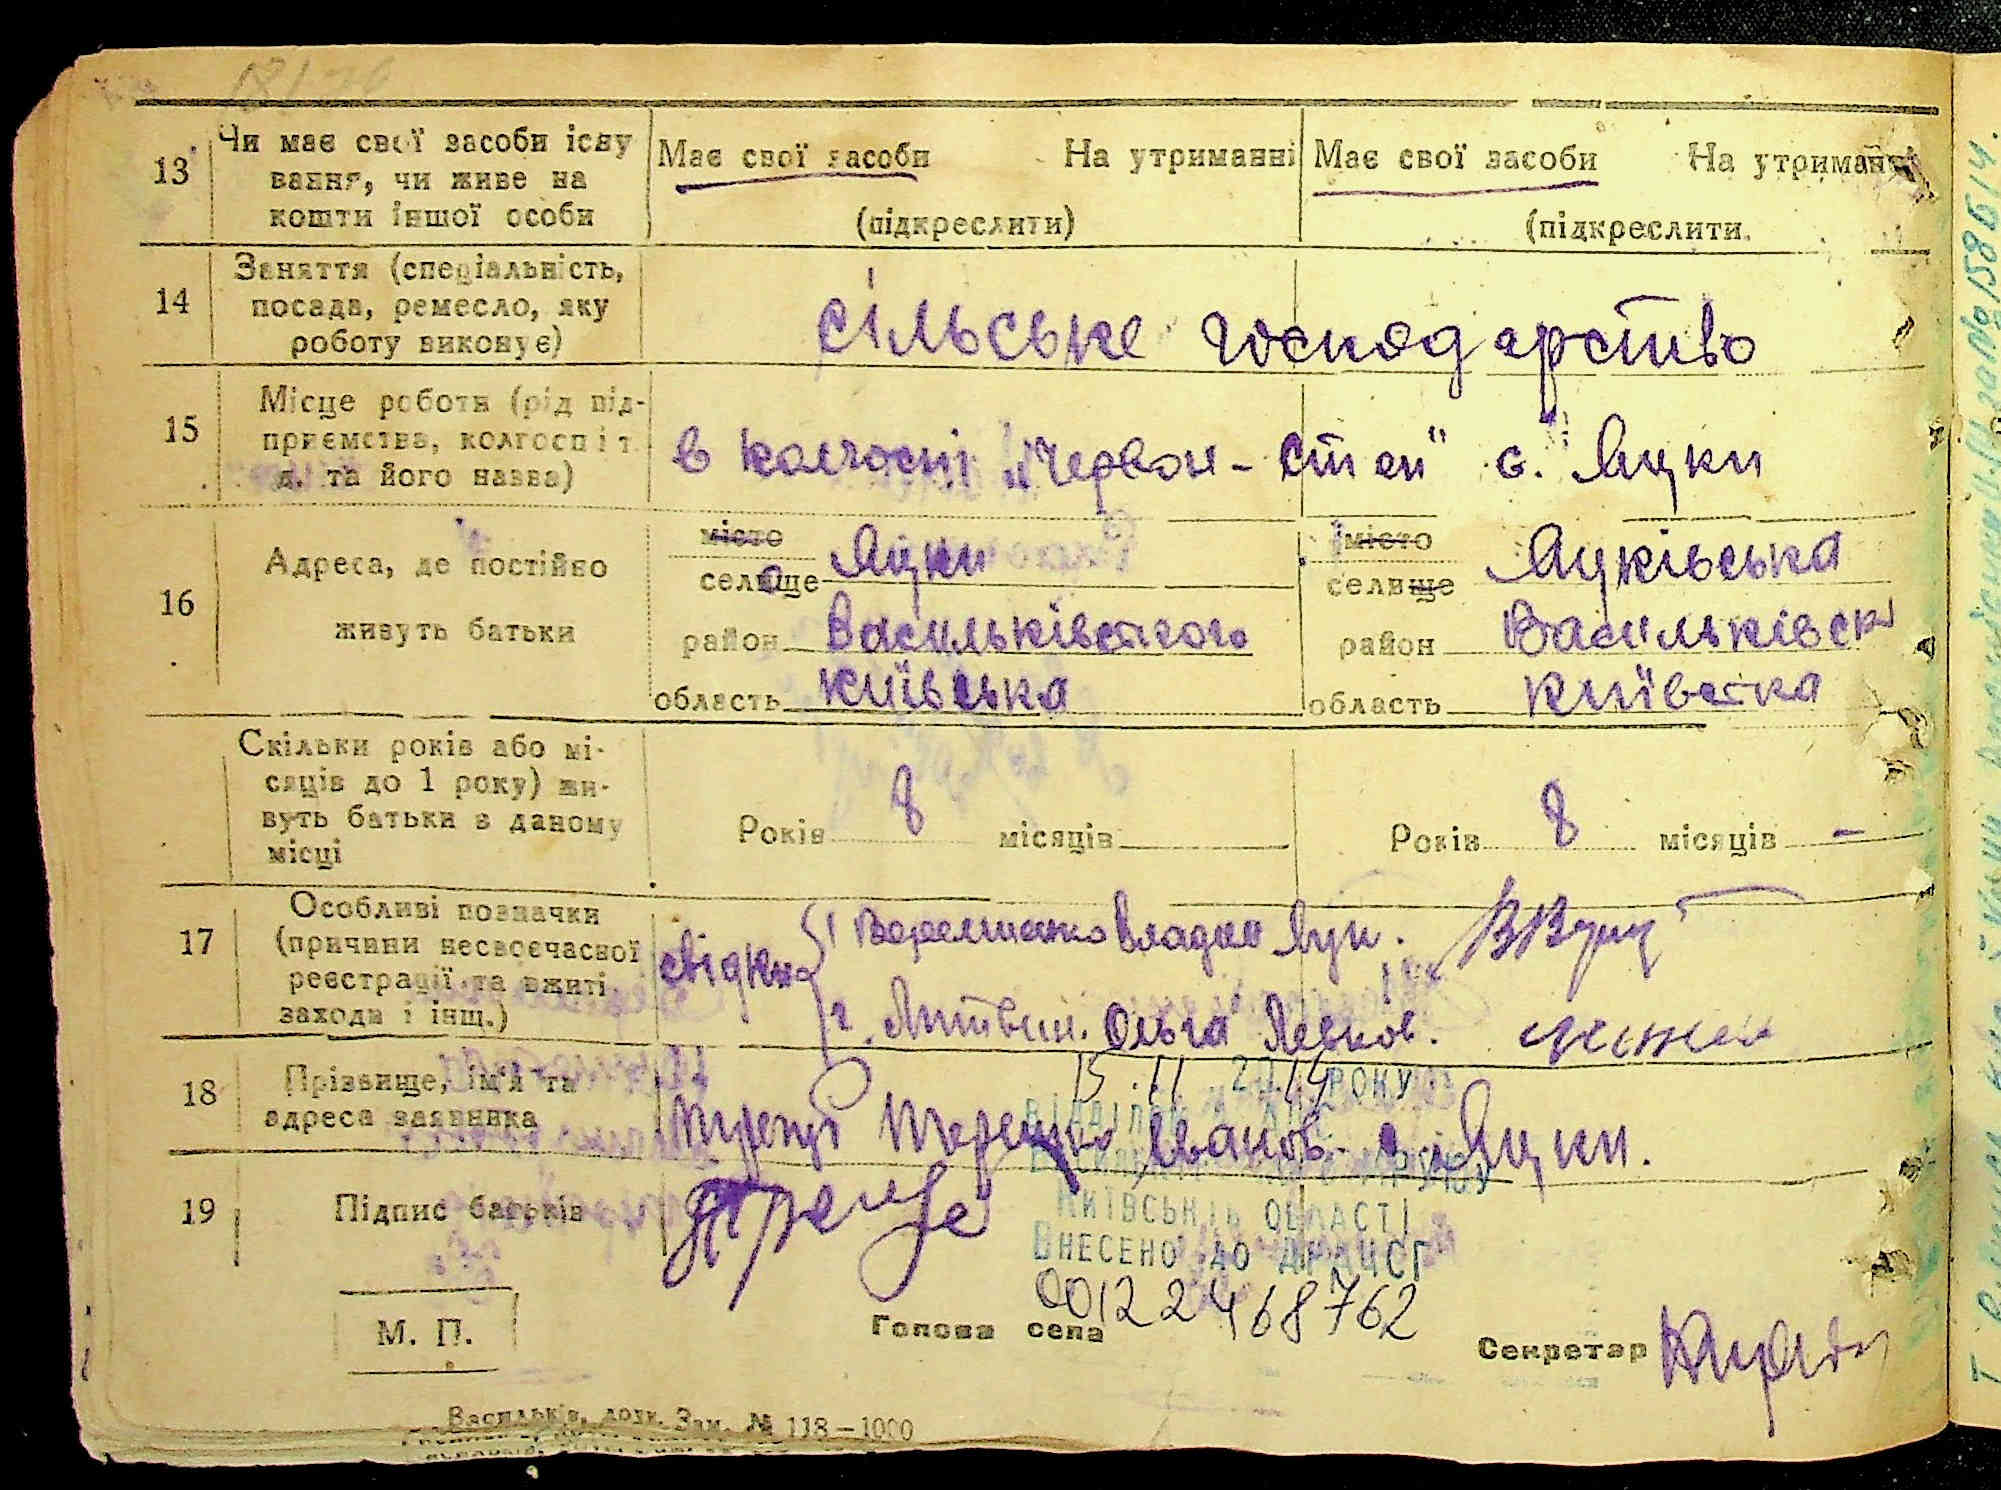 13 Чи має свої засоби існу
вання, чи живе на
кошти іншої особи
Має свої засоби На утриманні
(підкреслити)
Має свої засоби На утриманні
(підкреслити
14 Заняття (спеціальність,
посада, ремесло, яку
роботу виконує)
сільське господарство
15 Місце роботи (рід під-
приємства, колгосп і т.
д. та його назва)
в колгоспі „Червон-Степ" с. Яцки
16 Адреса, де постійно
живуть батьки
місто
селище Яцки
район Васильківського
область Київська
місто
селище Яцківська
район Васильківск
область Київська
Скільки років або мі-
сяців до 1 року) жи-
вуть батьки в даному
місці
Років 8 місяців
Років 8 місяців -
17 Особливі позначки
(причини несвоєчасної
реєстрації та вжиті
заходи і інщ.)
свідки
Ольга Левков.
18 Прізвище, ім'я та
адреса заявника
Терешко Іванов. с. Яцки.
15.11 2014 РОКУ
КИЇВСЬКІЙ ОБЛАСТІ
ВНЕСЕНО ДО ДРАЦСГ
00122468762
19 Підпис батьків
М. П.
Голова села
Секретар
Васильків, друк. Зам. № 118—1000